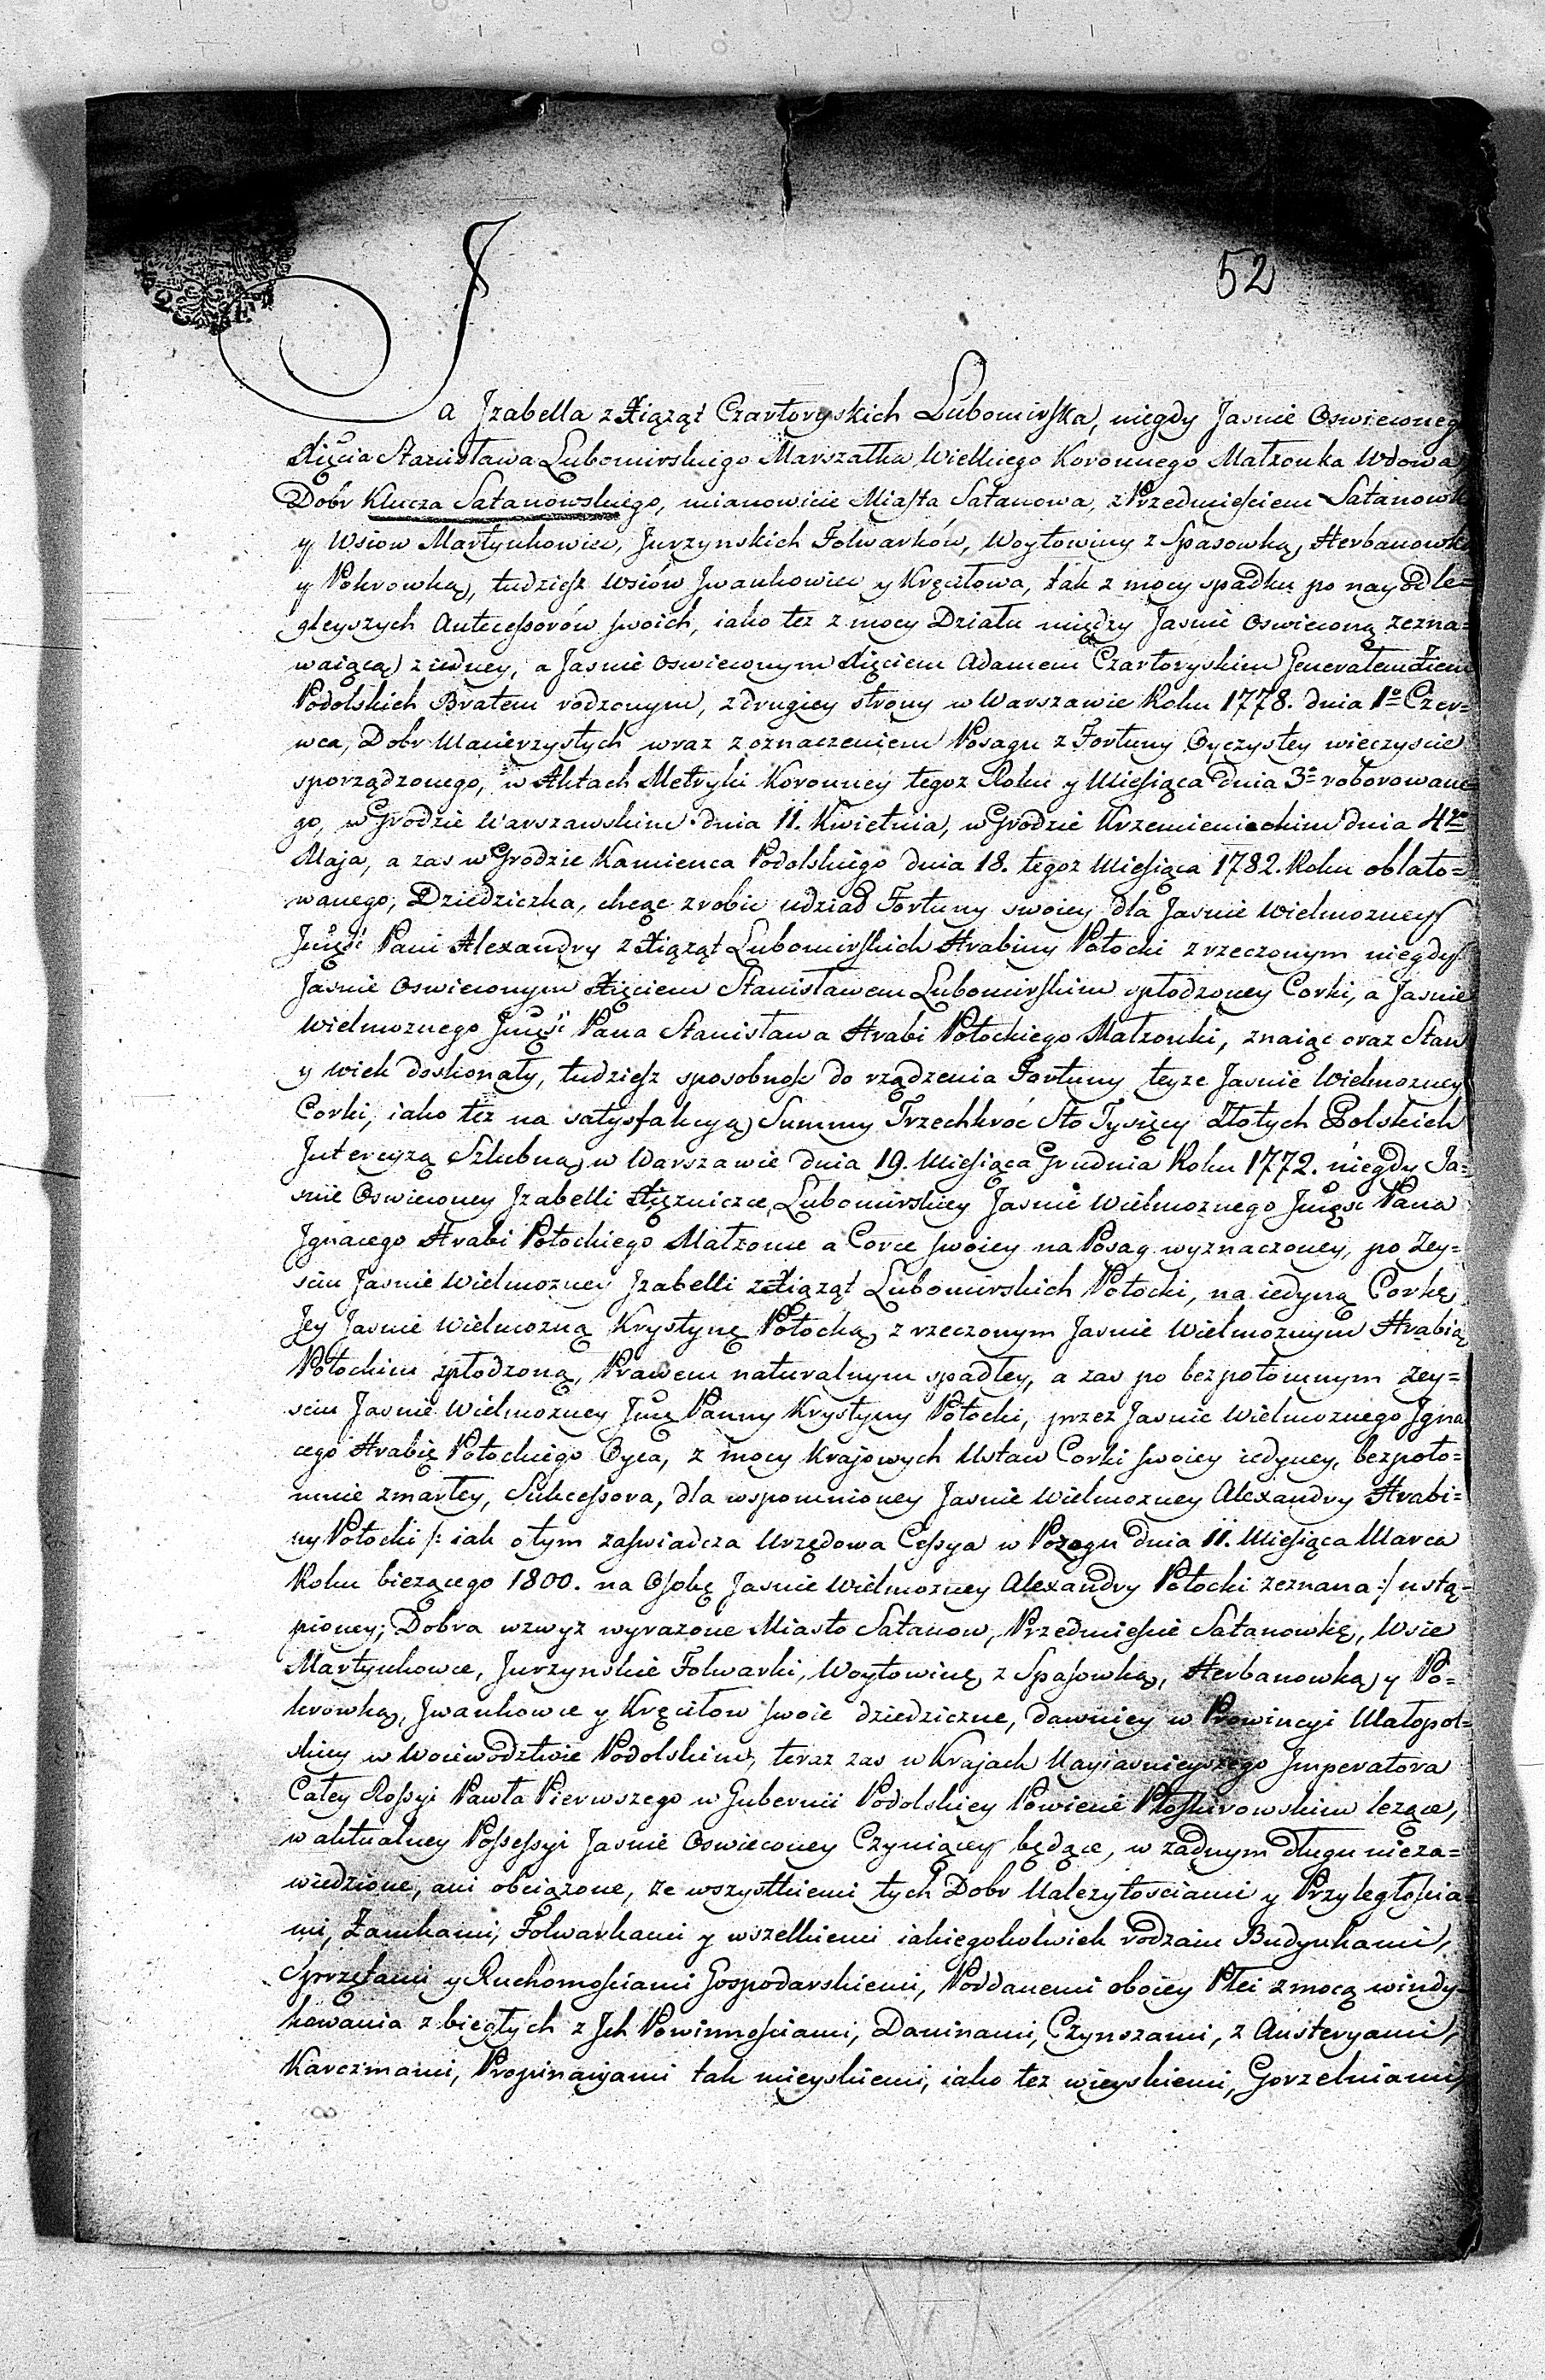 52
Ja Jzabella z Xiążąt Czartoryskich Lubomirska, niegdy Jasnie Oswieconego
Xięcia Stanisława Lubomirskiego Marszałka Wielkiego Koronnego Małżonka Wdowa
Dobr Klucza Satanowskiego, mianowicie Miasta Satanowa, z Przedmieściem Satanowką
y Wsiow Martynkowiec, Jurzynskich Folwarków, Woytowiny z Spasowką, Herbanowką
y Pokrowką, tudziesz Wsiów Jwankowiec y Kręciłowa, tak z mocy spadku po nayodle=
gleyszych Antecessorów swoich, iako tez z mocy Działu między Jasnie Oswieconą zezna=
waiącą z iedney, a Jasnie Oswieconym Xięciem Adamem Czartoryskim Generałem Ziem
Podolskich Bratem rodzonym, z drugiey strony w Warszawie Roku 1778. dnia 1o Czer=
wca, Dobr Macierzystych wraz z oznaczeniem Posagu z Fortuny Oyczystey wieczyscie
sporządzonego, w Aktach Metryki Koronney tegoz Roku y Miesiąca dnia 3o roborowane=
go, w Grodzie Warszawskim dnia 11. Kwietnia, w Grodzie Krzemienieckim dnia 4to
Maja, a zas w Grodzie Kamienca Podolskiego dnia 18. tegoz Miesiąca 1782. Roku oblato=
wanego, Dziedziczka, chcąc zrobic udział Fortuny swoiey dla Jasnie Wielmozney
Jmość Pani Alexandry z Xiążąt Lubomirskich Hrabiny Potocki z rzeczonym niegdy
Jasnie Oswieconym Xięciem Stanisławem Lubomirskim spłodzoney Corki, a Jasnie
Wielmoznego Jmość Pana Stanisława Hrabi Potockiego Małżonki, znaiąc oraz Stan
y wiek doskonały, tudziesz sposobnośc do rządzenia Fortuny teyze Jasnie Wielmozney
Corki, iako tez na satysfakcyą Summy Trzechkroć Sto Tysięcy Złotych Polskich
Jntercyzą Szlubną w Warszawie dnia 19. Miesiąca Grudnia Roku 1772. niegdy Ja=
snie Oswieconey Jzabelli Xiężniczce Lubomirskiey Jasnie Wielmoznego Jmość Pana
Jgnacego Hrabi Potockiego Małżonce a Corce swoiey na Posag wyznaczoney, po Zey=
sciu Jasnie Wielmozney Jzabelli z Xiążąt Lubomirskich Potocki, na iedyną Corkę
Jey Jasnie Wielmozną Krystynę Potocką z rzeczonym Jasnie Wielmoznym Hrabią
Potockim spłodzoną, Prawem naturalnym spadłey, a zas po bezpotomnym zey=
sciu Jasnie Wielmozney Jmć Panny Krystyny Potocki, przez Jasnie Wielmoznego Jgna
cego Hrabię Potockiego Oyca, z mocy Krajowych Ustaw Corki swoiey iedyney, bezpoto=
mnie zmarłey, Sukcessora, dla wspomnioney Jasnie Wielmozney Alexandry Hrabi=
ny Potocki /: iak o tym zaswiadcza Urzędowa Cessya w Pozogu dnia 11. Miesiąca Marca
Roku bieżącego 1800. na Osobę Jasnie Wielmozney Alexandry Potocki zeznana :/ ustą=
pioney; Dobra wzwyz wyrazone Miasto Satanow, Przedmieście Satanowkę, Wsie
Martynkowce, Jurzynskie Folwarki, Woytowinę z Spasowką, Herbanowką y Po=
krowką, Jwankowce y Kręciłow swoie dziedziczne, dawniey w Prowincyi Małopol=
skiey w Woiewodztwie Podolskim, teraz zas w Krajach Nayiasnieyszego Jmperatora
Całey Rossyi Pawła Pierwszego w Gubernii Podolskiey Powiecie Płoskirowskim lezące,
w aktualney Possessyi Jasnie Oswieconey Czyniącey będące, w zadnym długu nieza=
wiedzione, ani obciązone, ze wszystkiemi tych Dobr Nalezytosciami y Przyległościa=
mi, Zamkami, Folwarkami y wszelkiemi iakiegokolwiek rodzaiu Budynkami,
Sprzętami y Ruchomościami Gospodarskiemi, Poddanemi oboiey Płci z mocą windy=
kowania zbiegłych z Jch Powinnościami, Daninami, Czynszami, z Austeryami,
Karczmami, Propinacyami tak mieyskiemi, iako tez wieyskiemi, Gorzelniami,